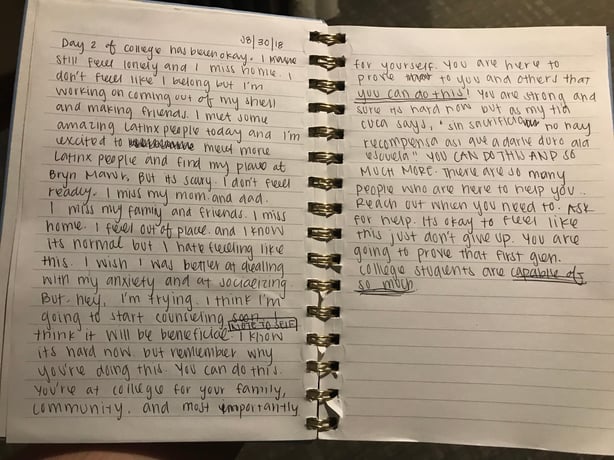 |8/30/18
Day 2 of college has been okay. I
still feel lonely and I miss home. I
don't feel like I belong but I'm
working on coming out of my shell
and making friends. I met some
amazing Latinx people today and I'm
excited to meet more
Latinx people and find my place at
Bryn Mawr. But its scary. I don't feel
ready. I miss my mom and dad.
I miss my family and friends. I miss
home. I feel out of place. and I know
its normal but I hate feeling like
this. I wish I was better at dealing
with my anxiety and at socializing.
But. hey, I'm trying. I think I'm
going to start counseling soon. I
think it will be beneficial. NOTE TO SELF I know
its hard now. but remember why
you're doing this. You can do this.
You're at college for your family,
community. and most importantly
for yourself. You are here to
prove to you and others that
you can do this! You are strong and
sure its hard now but as my tia
cuca says, "sin sacrificio no hay
recompensa asi que a darle duro ala
escuela" YOU CAN DO THIS AND SO
MUCH MORE. There are so many
people who are here to help you..
Reach out when you need to. Ask
for help. Its okay to feel like
this just don't give up. You are
going to prove that first gen.
college students are capable of
so much